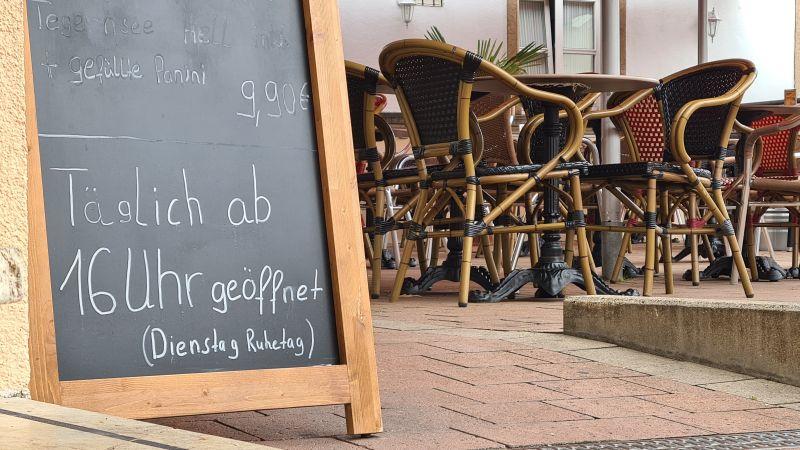 Tegernsee Hell
+ gefüllte Panini
9,90€
Täglich ab
16 Uhr geöffnet
(Dienstag Ruhetag)